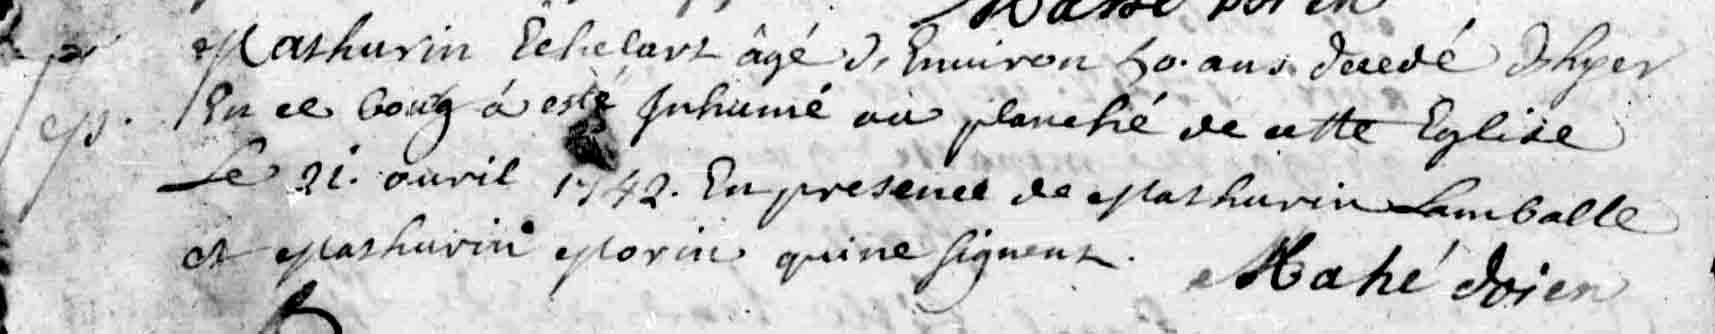 Mahé doien
Mathurin Echelart âgé d'Environ 50. ans. decedé d'hyer
En ce bourg á esté Inhumé au planché de cette Eglise
Le 21. avril 1742. En presence de Mathurin Lamballe
et Mathurin Morin qui ne signent.
Mahé doien